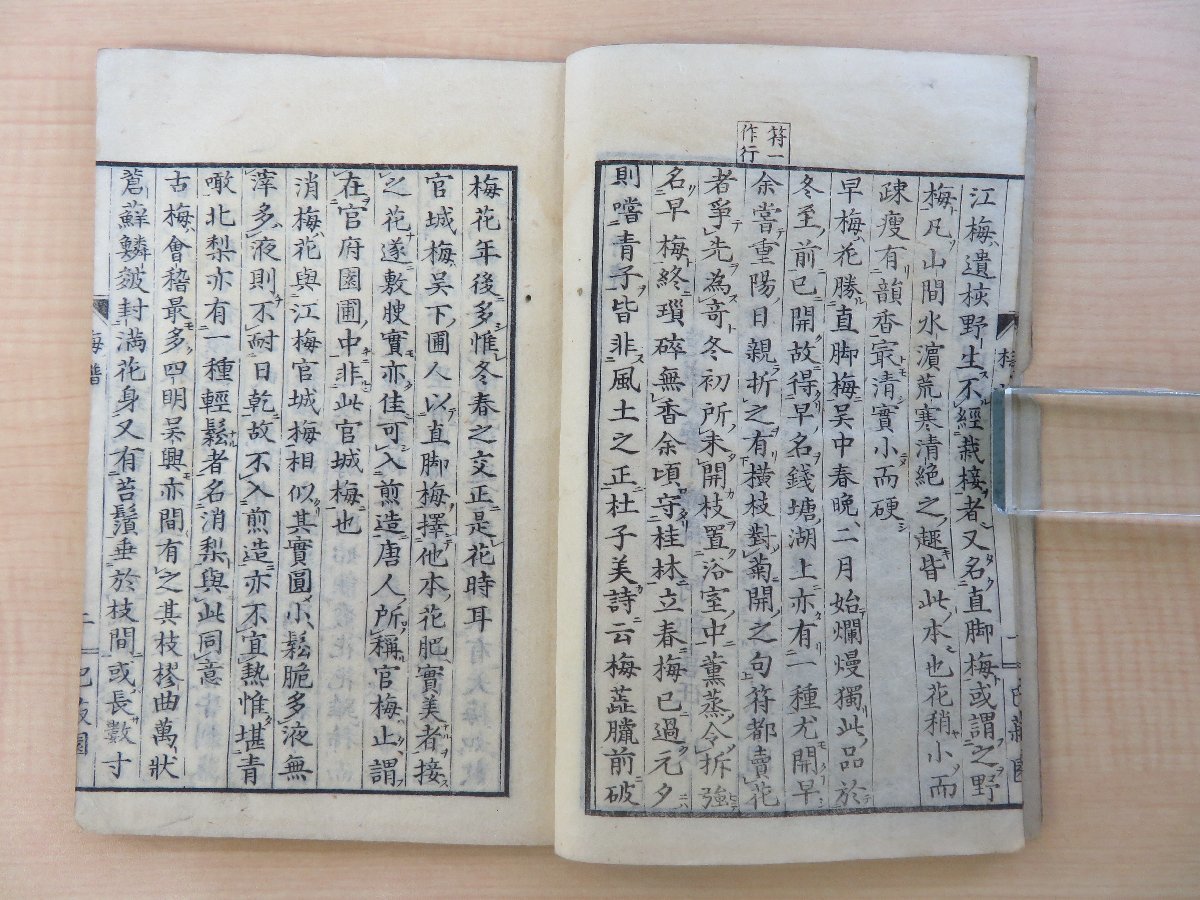 符一
作行
江梅遺核野生不經栽接者又名直脚梅或謂之野
梅凡山間水濵荒寒清絶之趣皆此本也花稍小而
疎瘦有韻香冣清實小而硬
早梅花勝直脚梅吳中春晚二月始爛熳獨此品於
冬至前已開故得早名錢塘湖上亦有一種尤開早
余嘗重陽日親折之有橫枝對菊開之句符都賣花
者爭先為竒冬初所未開枝置浴室中薰蒸令拆強
名早梅終瑣碎無香余頃守桂林立春梅已過元夕
則嚐青子皆非風土之正杜子美詩云梅蕋臘前破
梅花年後多惟冬春之交正是花時耳
官城梅吳下圃人以直脚梅擇他本花肥實美者接
之花遂敷腴實亦佳可入煎造唐人所稱官梅止謂
在官府園圃中非此官城梅也
消梅花與江梅官城梅相似其實圓小鬆脆多液無
滓多液則不耐日乾故不入煎造亦不宜熱惟堪青
噉北梨亦有一種輕鬆者名消梨與此同意
古梅會稽最多四明吳興亦間有之其枝樛曲萬狀
蒼蘚鱗皴封滿花身又有苔鬚垂於枝間或長數寸
梅譜 二